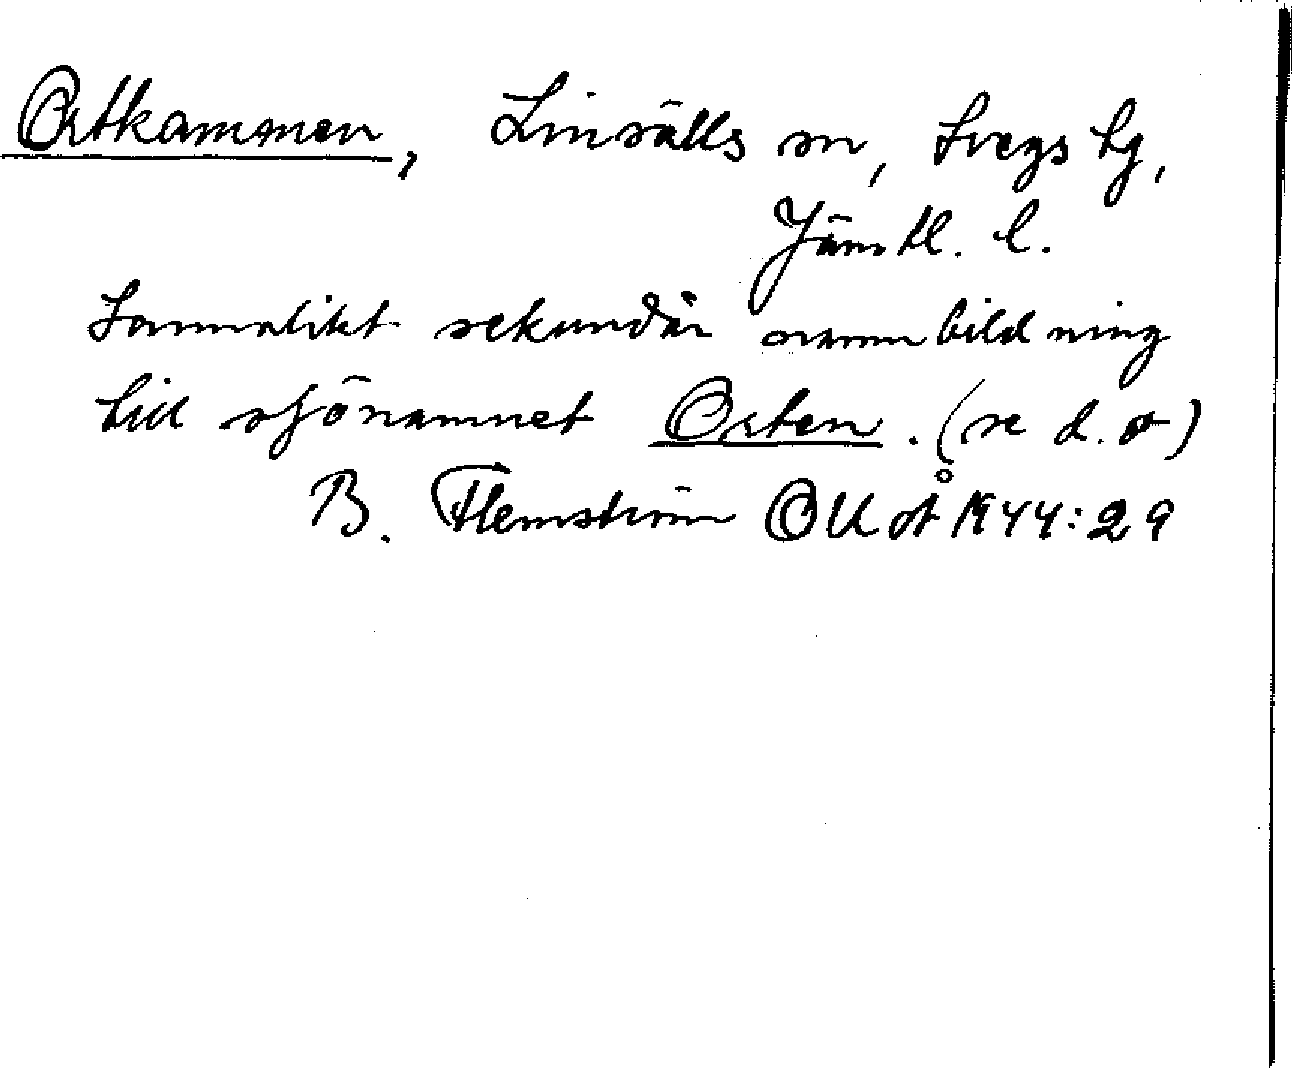 Ortkammen, Linsälls sn, Svegs tg,
Jämtl. l.
Sannolikt sekundär namnbildning
till sjönamnet Orten. (se d. o)
B. Flemström OUÅ 1944:29